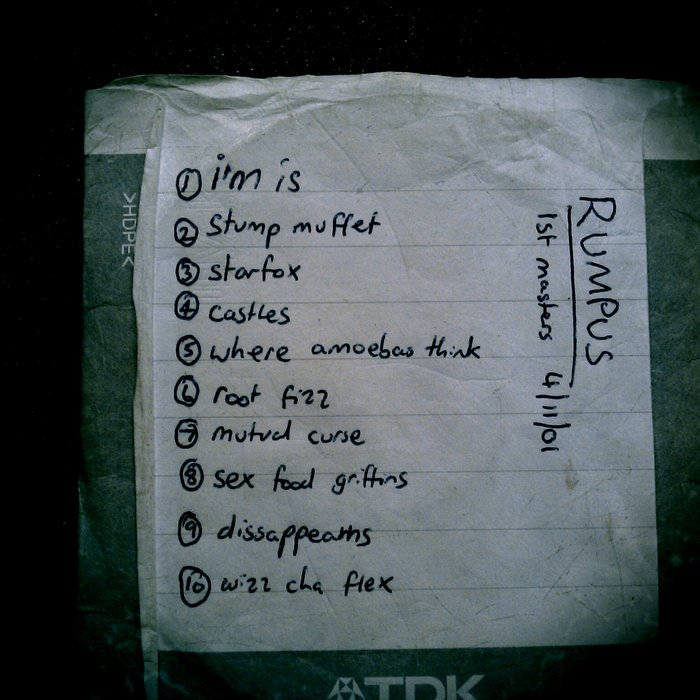 ① i'm is
② Stump muffet
③ starfox
④ castles
⑤ where amoebas think
⑥ root fizz
⑦ mutual curse
⑧ sex food griffins
⑨ dissappearths
⑩ wizz cha flex
RUMPUS
1st masters 4/11/01
>HDPE<
TDK